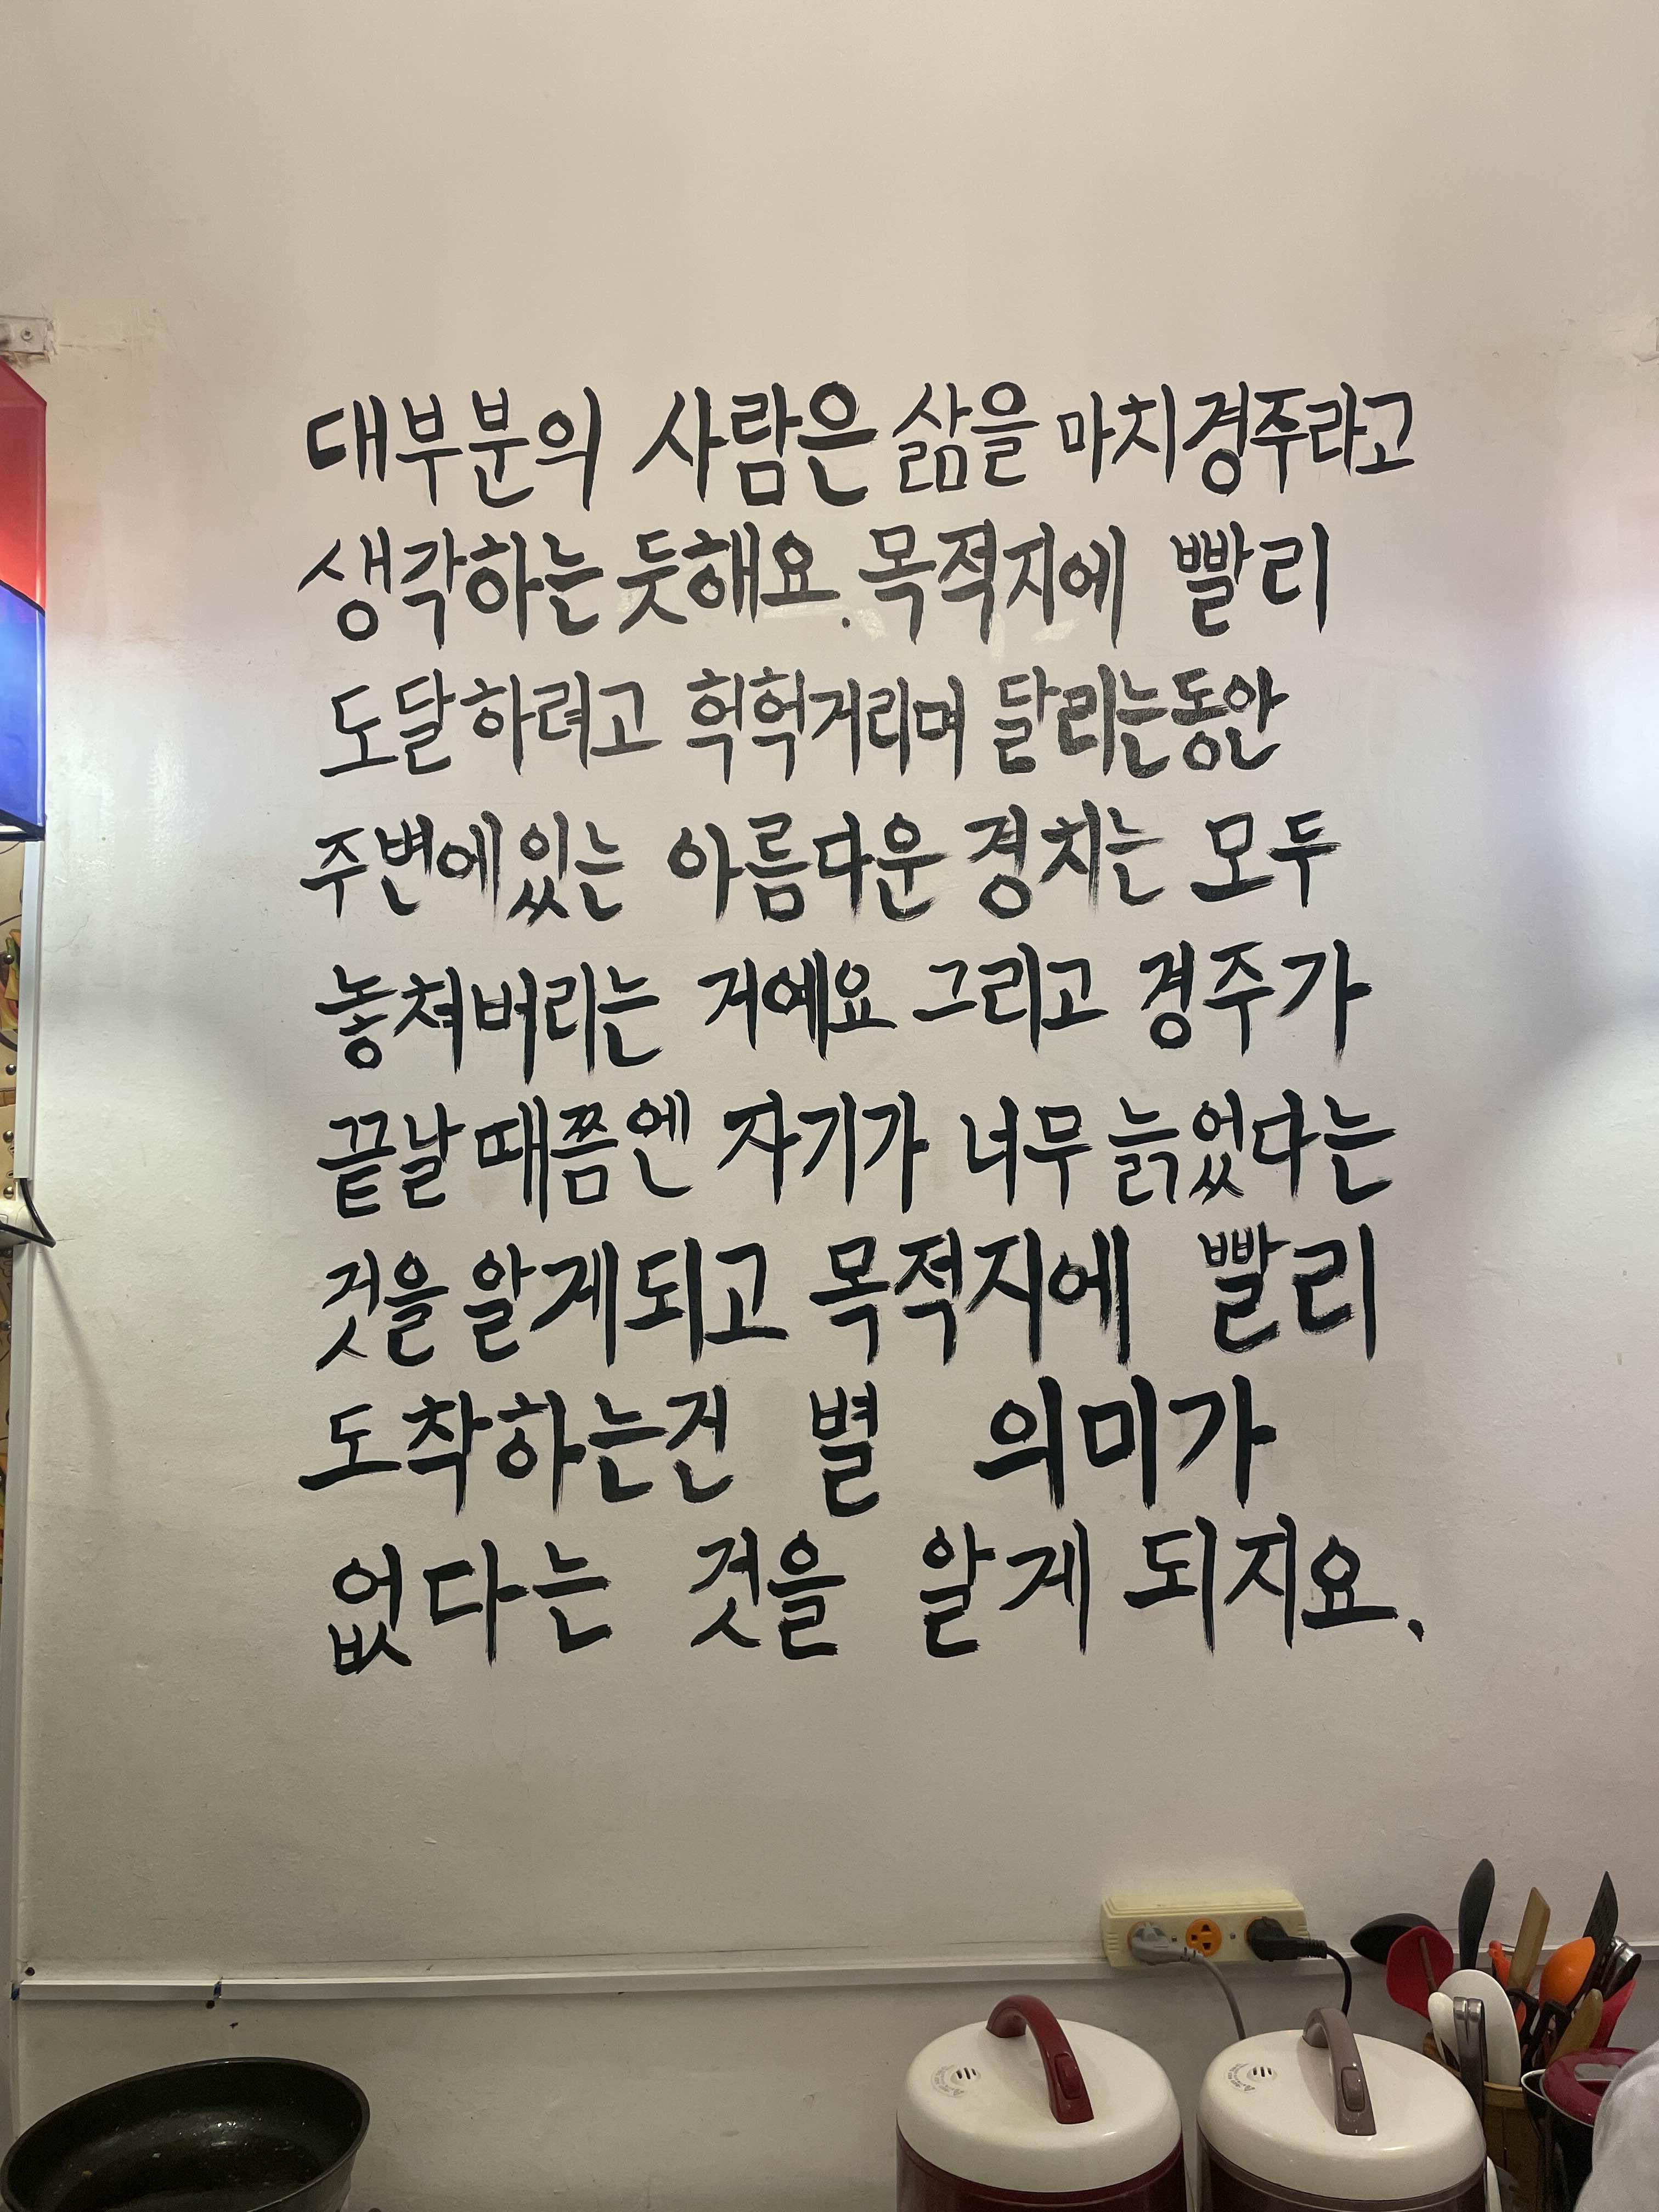 대부분의 사람은 삶을 마치 경주라고
생각하는 듯해요. 목적지에 빨리
도달하려고 헉헉거리며 달리는동안
주변에있는 아름다운 경치는 모두
놓쳐버리는 거예요 그리고 경주가
끝날 때쯤엔 자기가 너무 늙었다는
것을 알게되고 목적지에 빨리
도착하는건 별 의미가
없다는 것을 알게 되지요.